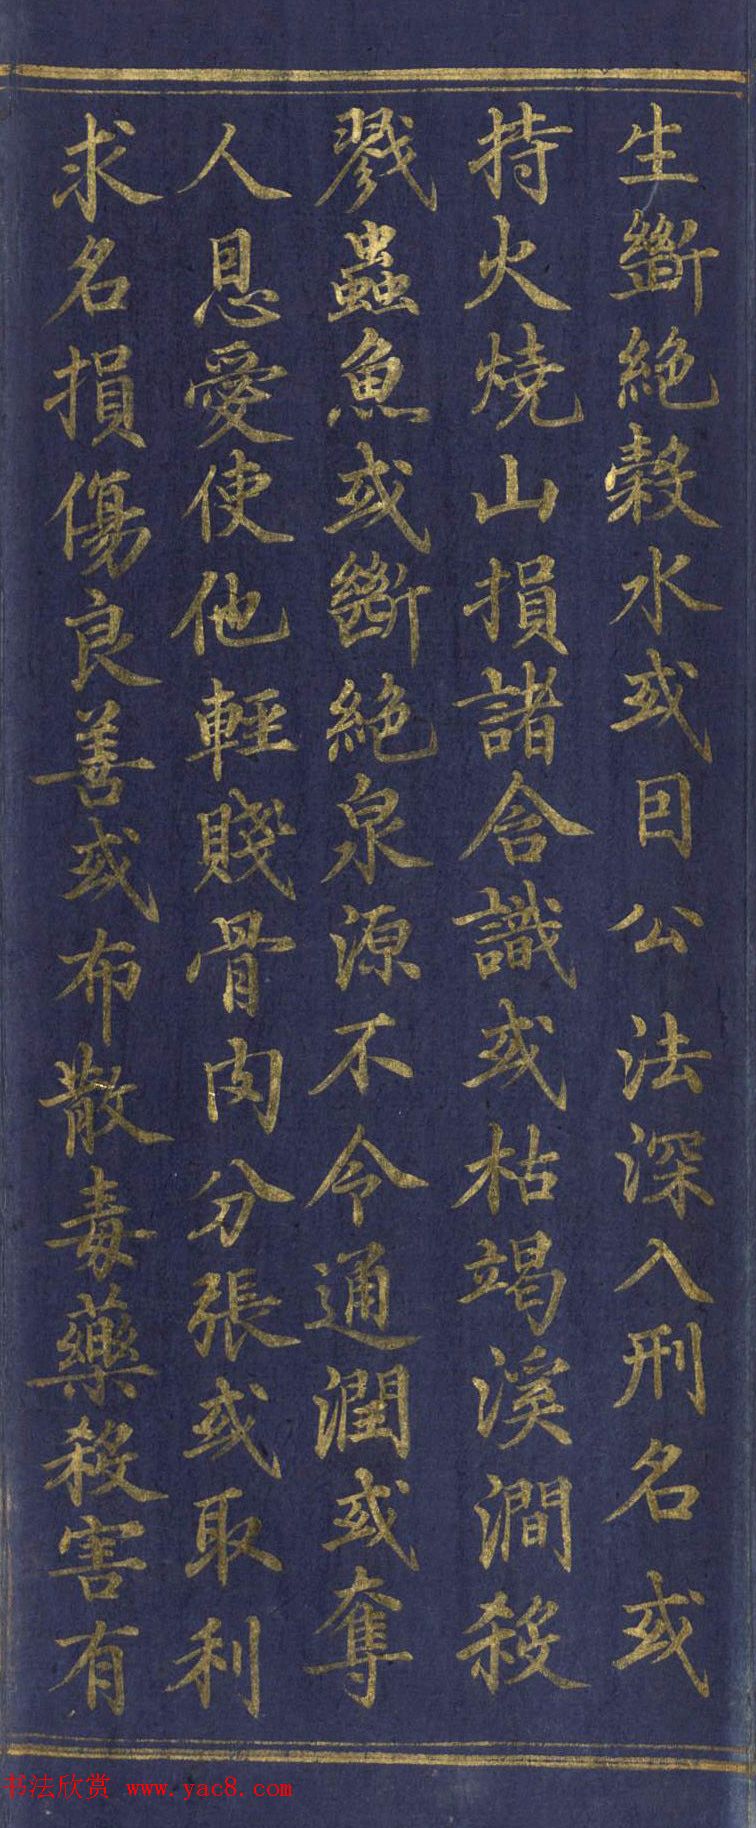 生斷絕穀水或因公法深入刑名或
持火燒山損諸含識或枯竭溪澗殺
戮蟲魚或斷絕泉源不令通潤或奪
人恩愛使他輕賤骨肉分張或取利
求名損傷良善或布散毒藥殺害有
书法欣赏 www.yac8.com